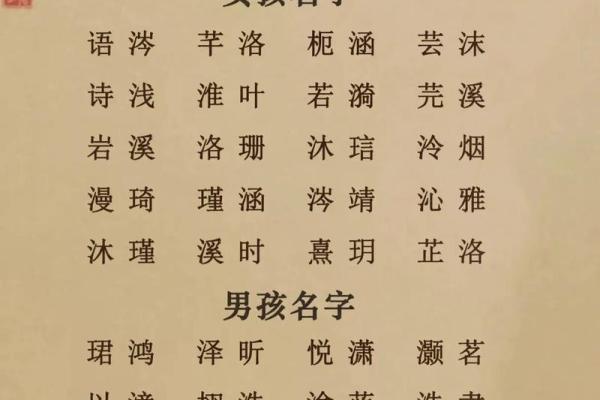 女孩名字
语涔 芊洛 枙涵 芸沫
诗浅 淮叶 若漪 芫溪
岩溪 洛珊 沐琂 泠烟
漫琦 瑾涵 涔靖 沁雅
沐瑾 溪时 熹玥 芷洛
男孩名字
珺鸿 泽昕 悦潇 灏茗